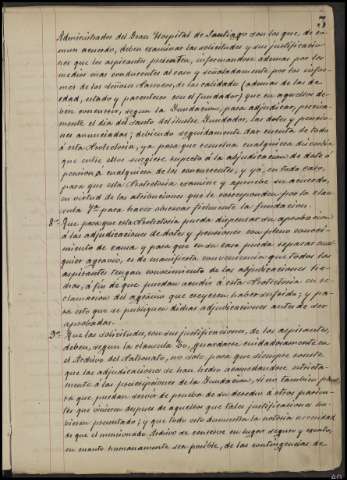 3
Administrador del Gran Hospital de Santiago son los que de co-
mun acuerdo, deben examinar las solicitudes y sus justificacio-
nes que los aspirantes presenten, informandose ademas por los
medios mas conducentes al caso y señaladamente por los infor-
mes de los Señores Parrocos, de las calidades (ademas de las de
edad, estado y parentesco con el fundador) que en aquellos de-
ben concurrir, segun la Fundacion, para adjudicar, precisa-
mente el dia del Santo del ilustre Fundador, las dotes y pensio-
nes anunciadas; debiendo seguidamente dar cuenta de todo
á esta Protectoria, ya para que resuelva cualquiera discordia
que entre ellos surgiere respecto á la adjudicacion de dote ó
pension á cualquiera de los concurrentes, y ya, en todo caso,
para que esta Protectoria examine y apruebe su acuerdo,
en virtud de las atribuciones que le corresponden por la clau-
sula para hacer observar fielmente la fundacion.
8º. Que para que esta Protectoria pueda dispensar su aprobacion
á las adjudicaciones de dotes y pensiones con pleno conoci-
miento de causa y para que en su caso pueda reparar cual-
quier agravio, es de manifiesta conveniencia que todos los
aspirantes tengan conocimiento de las adjudicaciones he-
chas, á fin de que puedan acudir á esta Protectoria en re-
clamacion del agravio que creyeren haber sufrido; y pa-
ra esto que se publiquen dichas adjudicaciones antes de ser
aprobadas.
9º. Que las solicitudes, con sus justificaciones, de los aspirantes,
deben, segun la clausula 30, guardarse cuidadosamente en
el Archivo del Patronato, no solo para que siempre conste
que las adjudicaciones se han hecho acomodandose estricta-
mente á las prescripciones de la Fundacion, si no tambien
ra que puedan servir de prueba de su derecho á otros parien-
tes que vinieren despues de aquellos que tales justificaciones hu-
bieren presentado; y que todo esto demuestra la notoria necesidad
de que el mencionado Archivo se conserve en lugar seguro y exento,
en cuanto humanamente sea posible, de las contingencias de